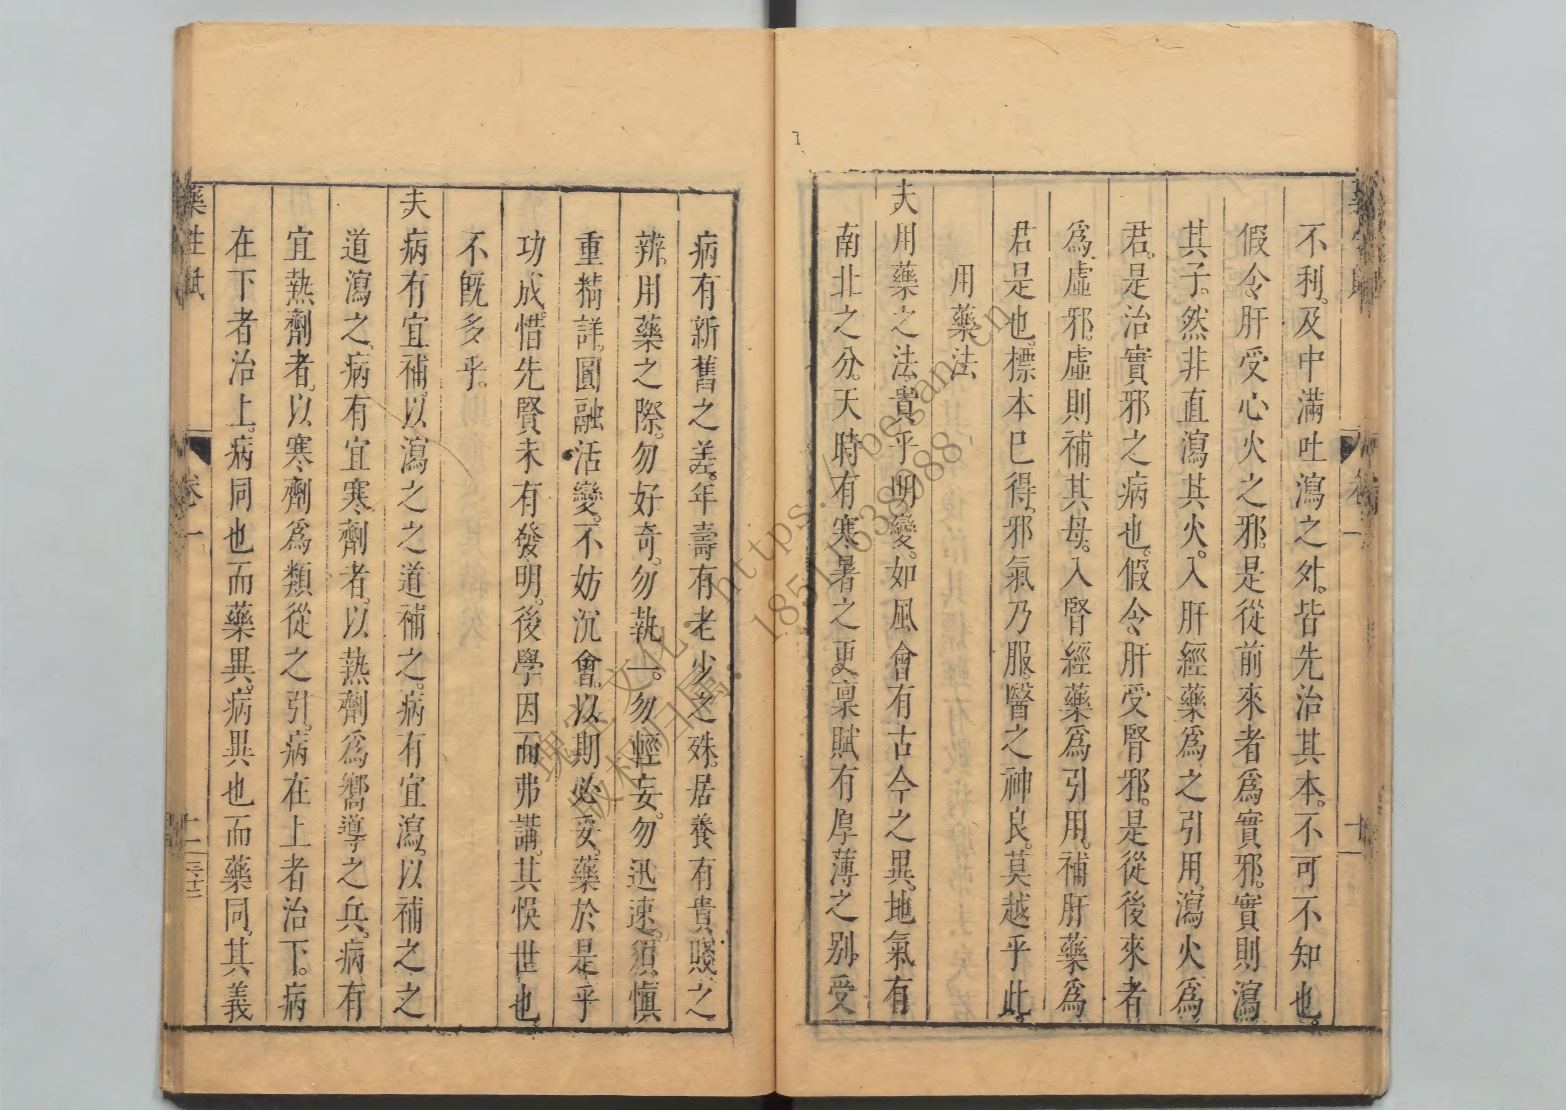 不利。及中滿吐瀉之外。皆先治其本。不可不知也。
假令肝受心火之邪。是從前來者爲實邪。實則瀉
其子。然非直瀉其火。入肝經藥爲之引用。瀉火爲
君。是治實邪之病也。假令肝受腎邪。是從後來者
爲虛邪。虛則補其母。入腎經藥爲引用。補肝藥爲
君是也。標本已得。邪氣乃服。醫之神良。莫越乎此。
用藥法
夫用藥之法。貴乎明變。如風會有古今之異。地氣有
南北之分。天時有寒暑之更。稟賦有厚薄之別。受
病有新舊之差。年壽有老少之殊。居養有貴賤之
辨。用藥之際。勿好奇。勿執一。勿輕妄。勿迅速。須慎
重精詳。圓融活變。不妨沉會。以期必妥。藥於是乎
功成。惜先賢未有發明。後學因而弗講。其悞世也。
不旣多乎。
夫病有宜補。以瀉之之道補之。病有宜瀉。以補之之
道瀉之。病有宜寒劑者。以熱劑爲嚮導之兵。病有
宜熱劑者。以寒劑爲類從之引。病在上者治下。病
在下者治上。病同也而藥異。病異也而藥同。其義
卷一
卷一
https://pegan.cn
18511638988